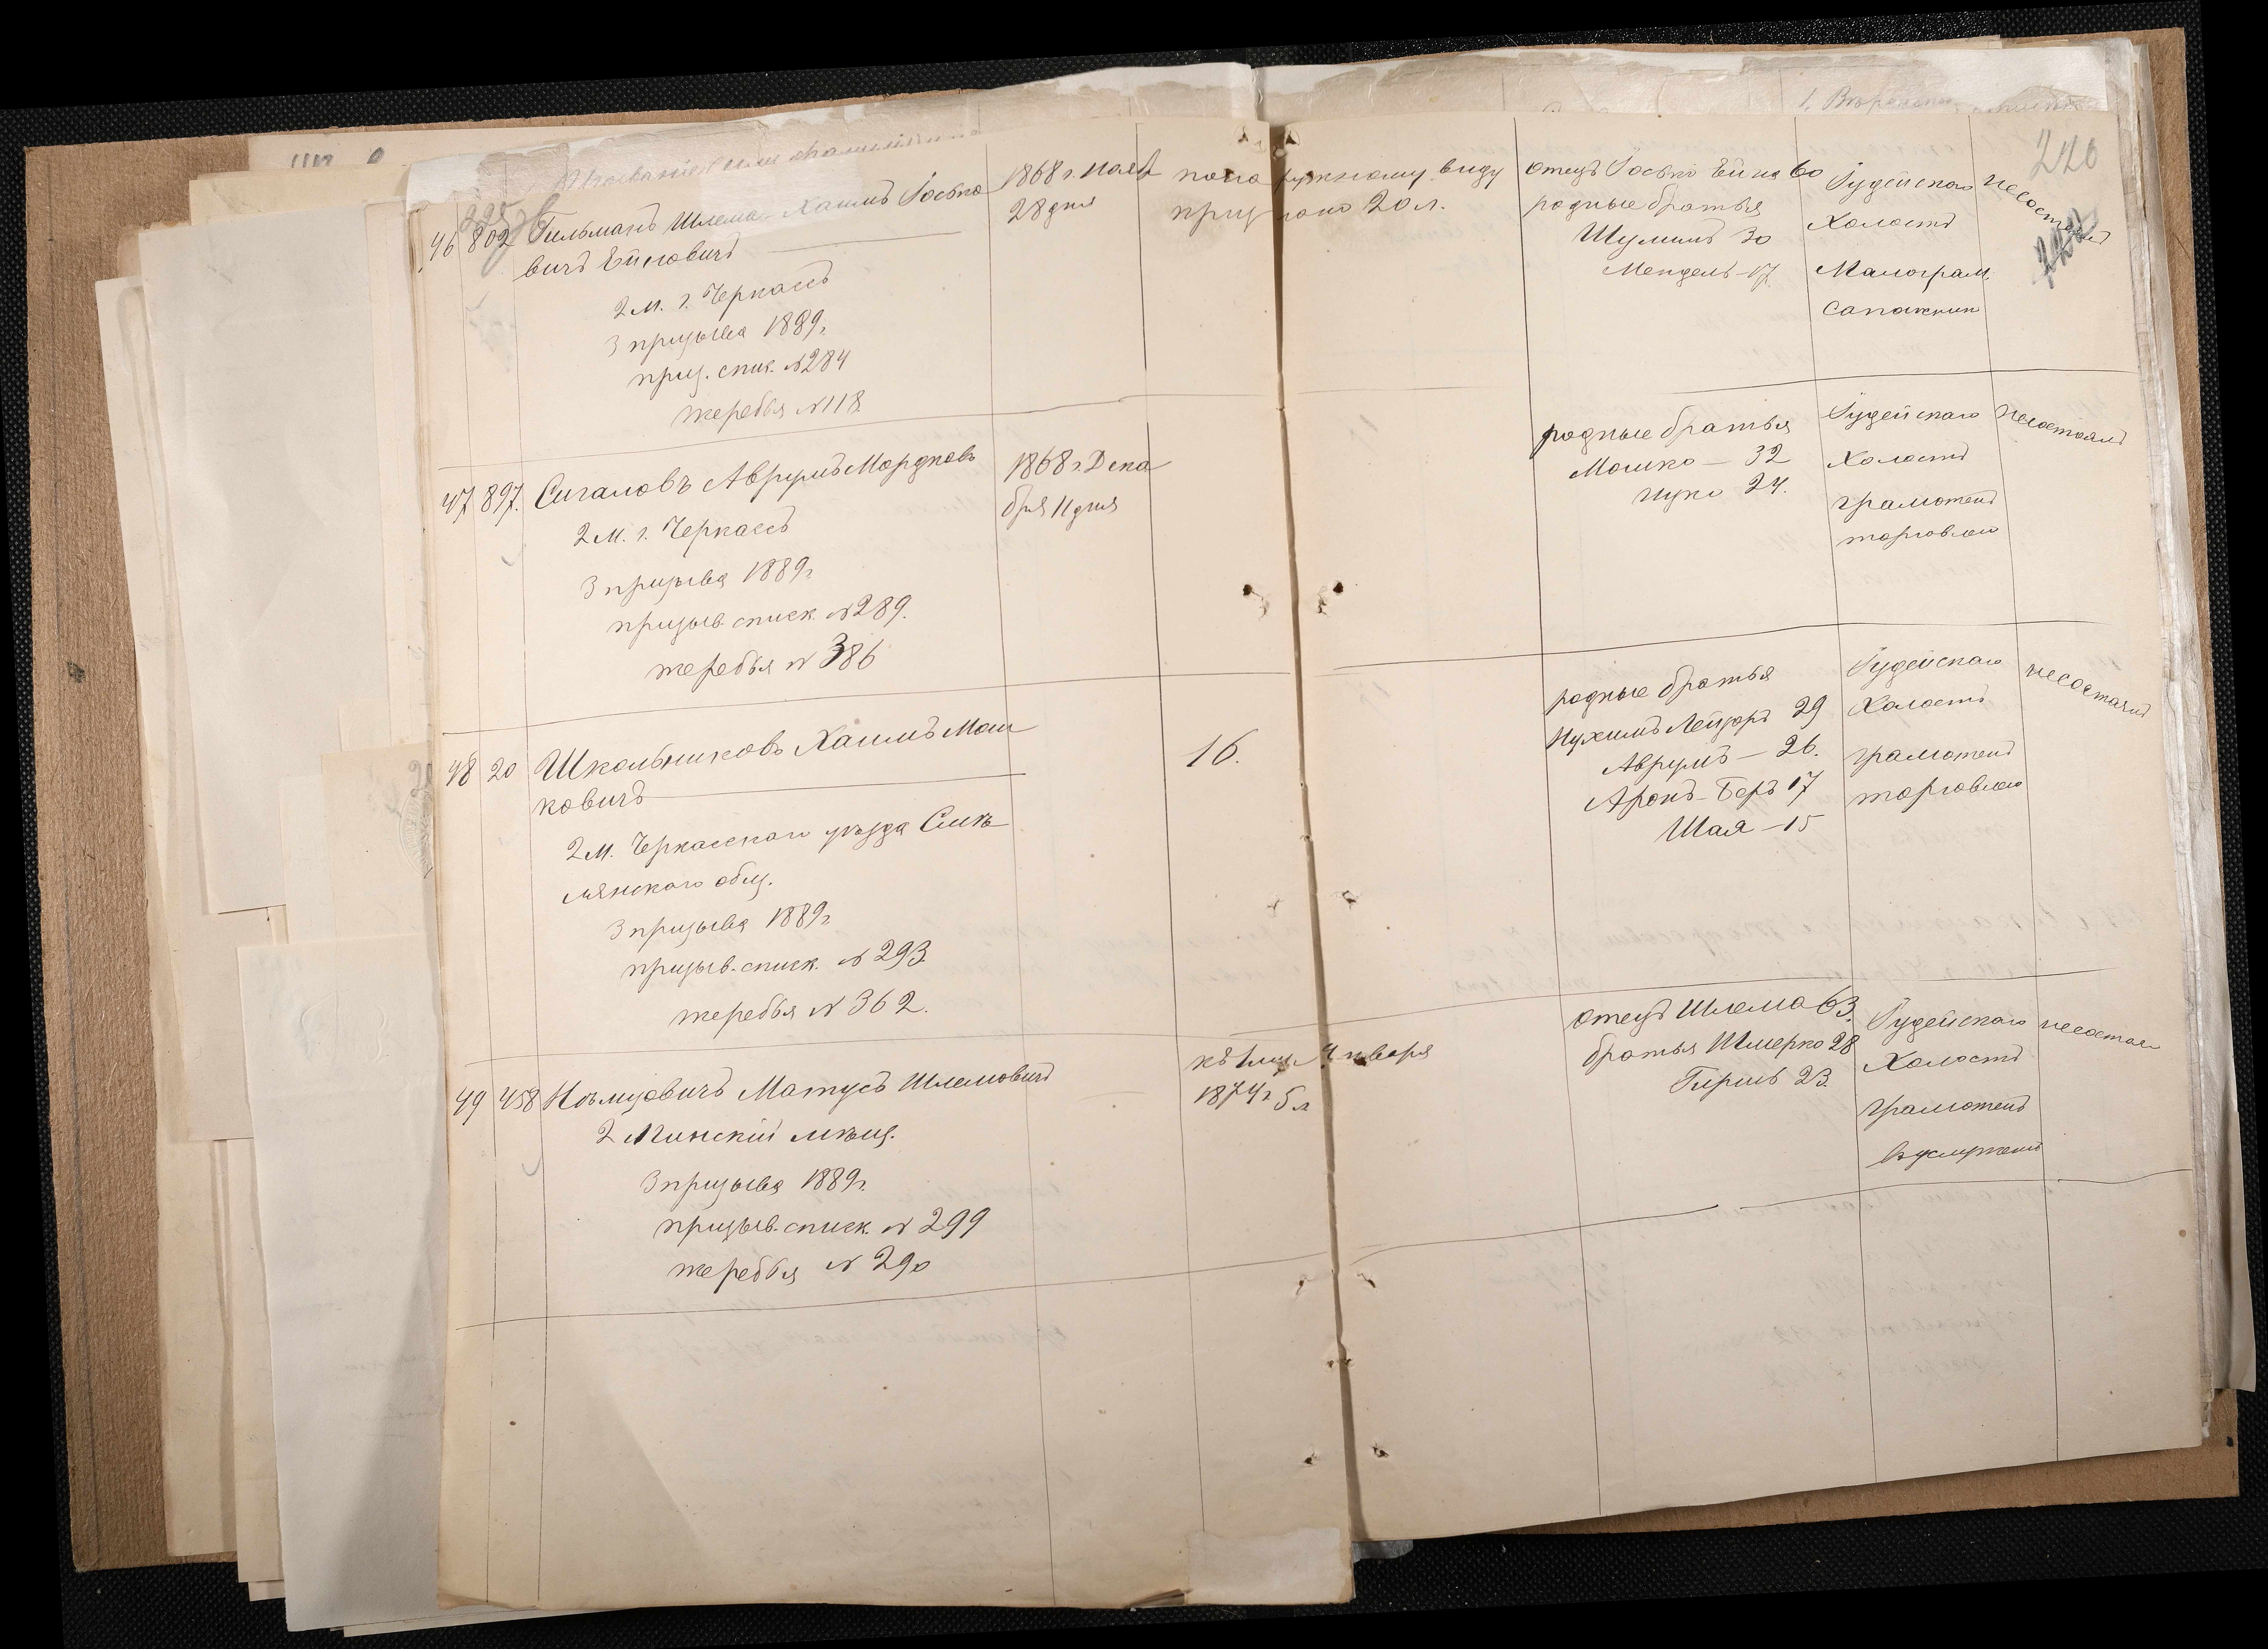 220
46 802 Гильманъ Шлема-Хаимъ Іосько
вичъ Ейновичъ
2 м. г. Черкассъ
3 призыва 1889 г.
приз. спис. №284
жеребья №118
1868 г. Ноября
28 дня
по наружному виду
признано 20 л.
отецъ Іосько Ейна 60
родные братья
Шулимъ 30
Мендель-17
Іудейскаго
Холостъ
Малограм.
сапожник
несостоялъ
47 897. Сигаловъ Аврумъ Мордковъ
2 м. г. Черкассъ
3 призыва 1889 г.
призыв. списк. №289.
жеребья № 386
1868 г. Дека
бря 11 дня
родные братья
Мошко — 32
Ицко 24.
Іудейскаго
Холостъ
грамотенъ
торговлею
несостоялъ
48 20 Школьниковъ Хаимъ Мош
ковичъ
2 м. Черкасскаго уѣзда Смѣ
лянскаго общ.
3 призыва 1889 г.
призыв. списк. № 293.
жеребья № 362.
16.
родные братья
Нухимъ Лейзоръ 29
Аврумъ — 26.
Аронъ-Беръ 17
Шая — 15
Іудейскаго
Холостъ
грамотенъ
торговлею
несостоялъ
49 458 Нѣмцовичъ Матусъ Шлемовичъ
2 Минскій мѣщ.
3 призыва 1889 г.
призыв. списк. № 299
жеребья № 290
къ 1му Января
1874 г. 5 л.
отецъ Шлема 63.
братья Шмерко 28
Гершъ 23.
Іудейскаго
Холостъ
грамотенъ
въ услуженіи
несостоял